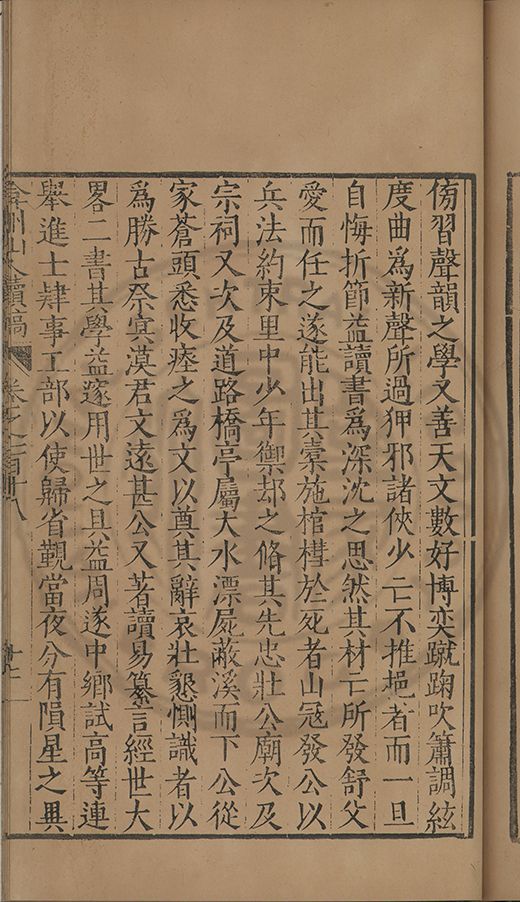 傍習聲韻之學又善天文數好博奕蹴踘吹簫調絃
度曲爲新聲所過狎邪諸俠少亡不推挹者而一旦
自悔折節益讀書爲深沈之思然其材亡所發舒父
愛而任之遂能出其橐施棺槥於死者山寇發公以
兵法約束里中少年禦却之脩其先忠壯公廟次及
宗祠又次及道路橋亭屬大水漂屍蔽溪而下公從
家蒼頭悉收瘞之爲文以奠其辭哀壯懇惻識者以
爲勝古祭冥漠君文遠甚公又著讀易纂言經世大
畧二書其學益邃用世之具益周遂中鄉試高等連
舉進士肄事工部以使歸省覲當夜分有隕星之異
弇州山人續稿 卷之一百廿八